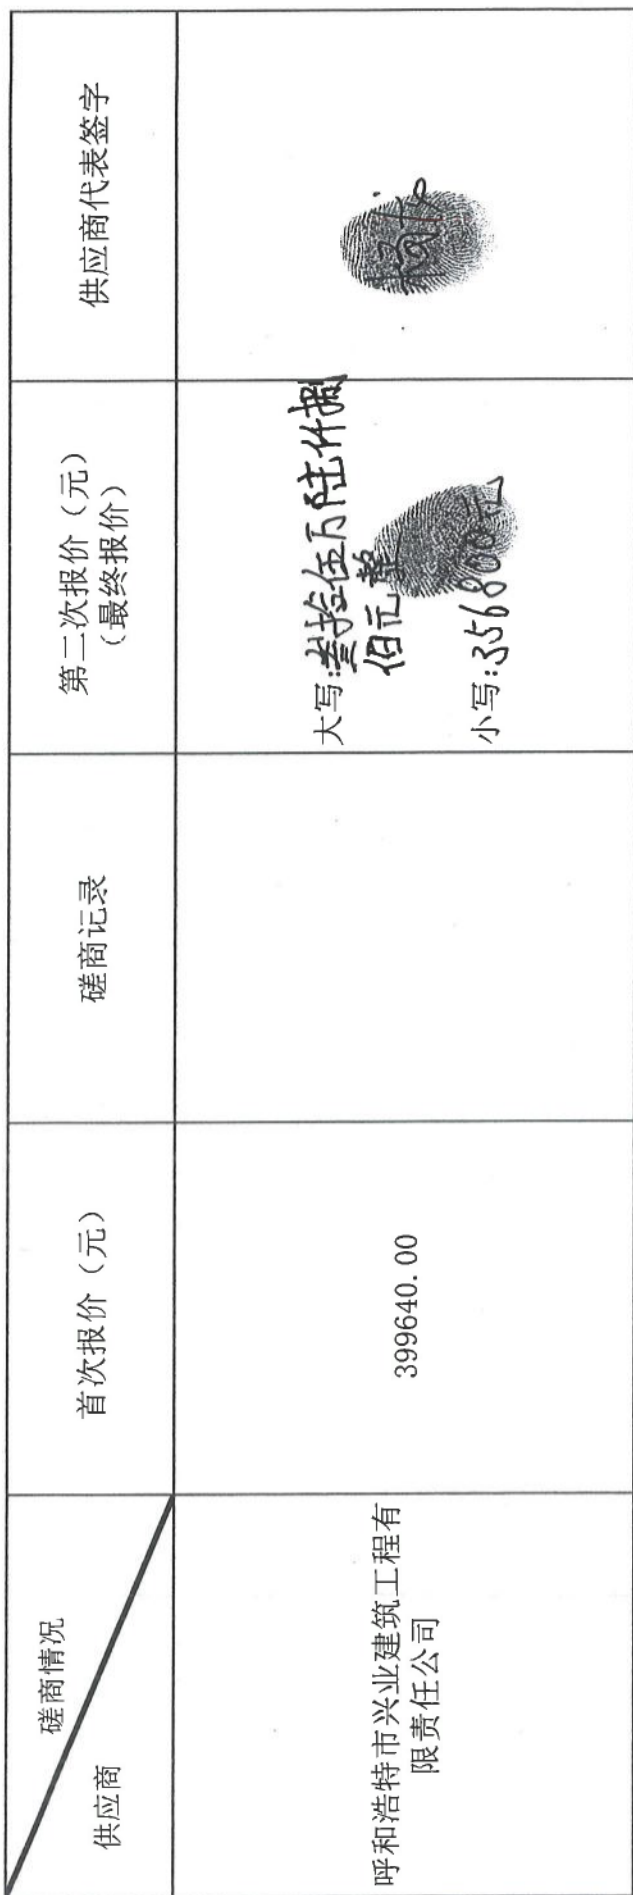 磋商情况
供应商
首次报价（元）
磋商记录
第二次报价（元）
（最终报价）
供应商代表签字
呼和浩特市兴业建筑工程有
限责任公司
399640.00
大写:叁拾伍万陆仟捌
佰元整
小写:356800元